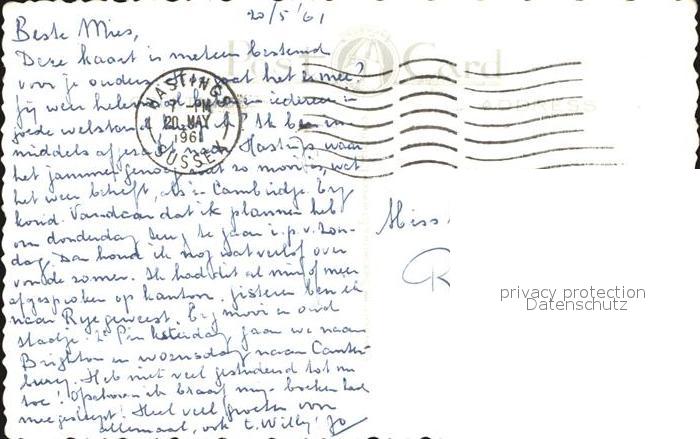 20/5 '61
Beste Mies,
Post Card
Deze kaart is meteen bestemd
voor je ouders. Hoe gaat het ermee?
Jij weer helemaal en iedereen in
goede welstand? Ik ben in-
middels afgezakt naar Hastings waar
het jammer genoeg niet zo mooi is, wat
het weer betreft, als in Cambridge. Erg
koud. Vandaar dat ik plannen heb
om donderdag terug te gaan i.p.v. Zon-
dag. Dan houd ik nog wat verlof over
voor de zomer. Ik had dit al min of meer
afgesproken op kantoor. Gisteren ben ik
naar Rye geweest. Erg mooi en oud
stadje. 2e Pinksterdag gaan we naar
Brighton en woensdag naar Canter-
bury. Heb niet veel gestudeerd tot nu
toe! Ofschoon ik braaf mijn boeken had
meegesleept! Heel veel groeten voor
allemaal, ook t. Willy. Jo
HASTINGS
7 - PM
20 MAY
1961
SUSSEX
ADDRESS
Miss
privacy protection
Datenschutz